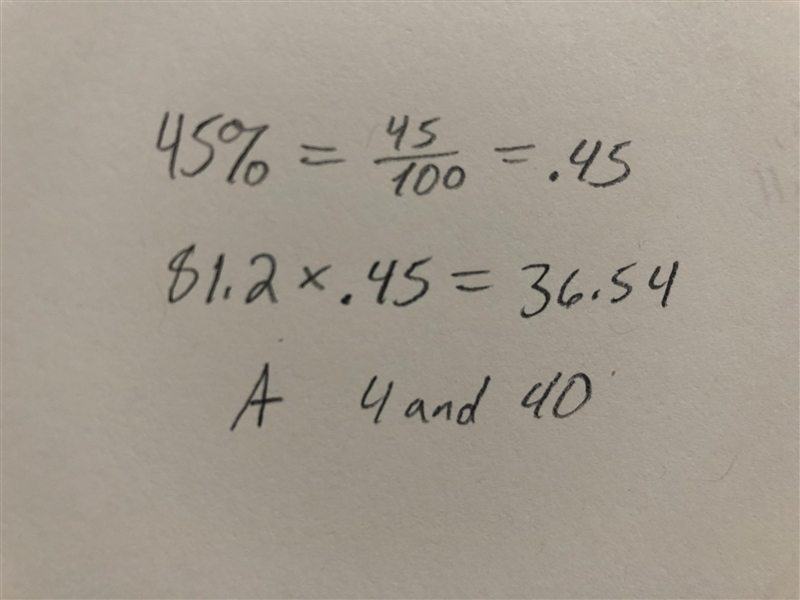 45% = 45/100 = .45
81.2 × .45 = 36.54
A 4 and 40